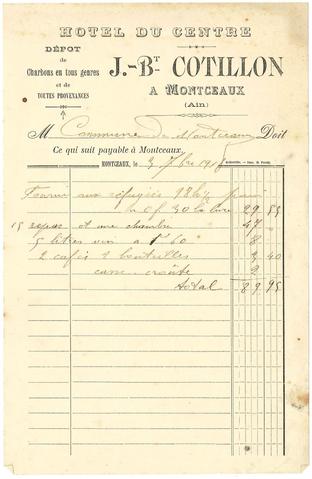 HOTEL DU CENTRE
DÉPOT
de
Charbons en tous genres
et de
TOUTES PROVENANCES
J.-BT- COTILLON
A MONTCEAUX
(Ain)
M Commune de Montceaux Doit
Ce qui suit payable à Montceaux.
MONTCEAUX, le 3 7bre 191
Fourni aux réfugiés 18 kg pain
à 0f 30 la livre 29 55
15 repas et une chambre 47
5 litres vin a 1 60 8
2 cafés 2 bouteilles 3 40
casse-croûte 2
total 89 95